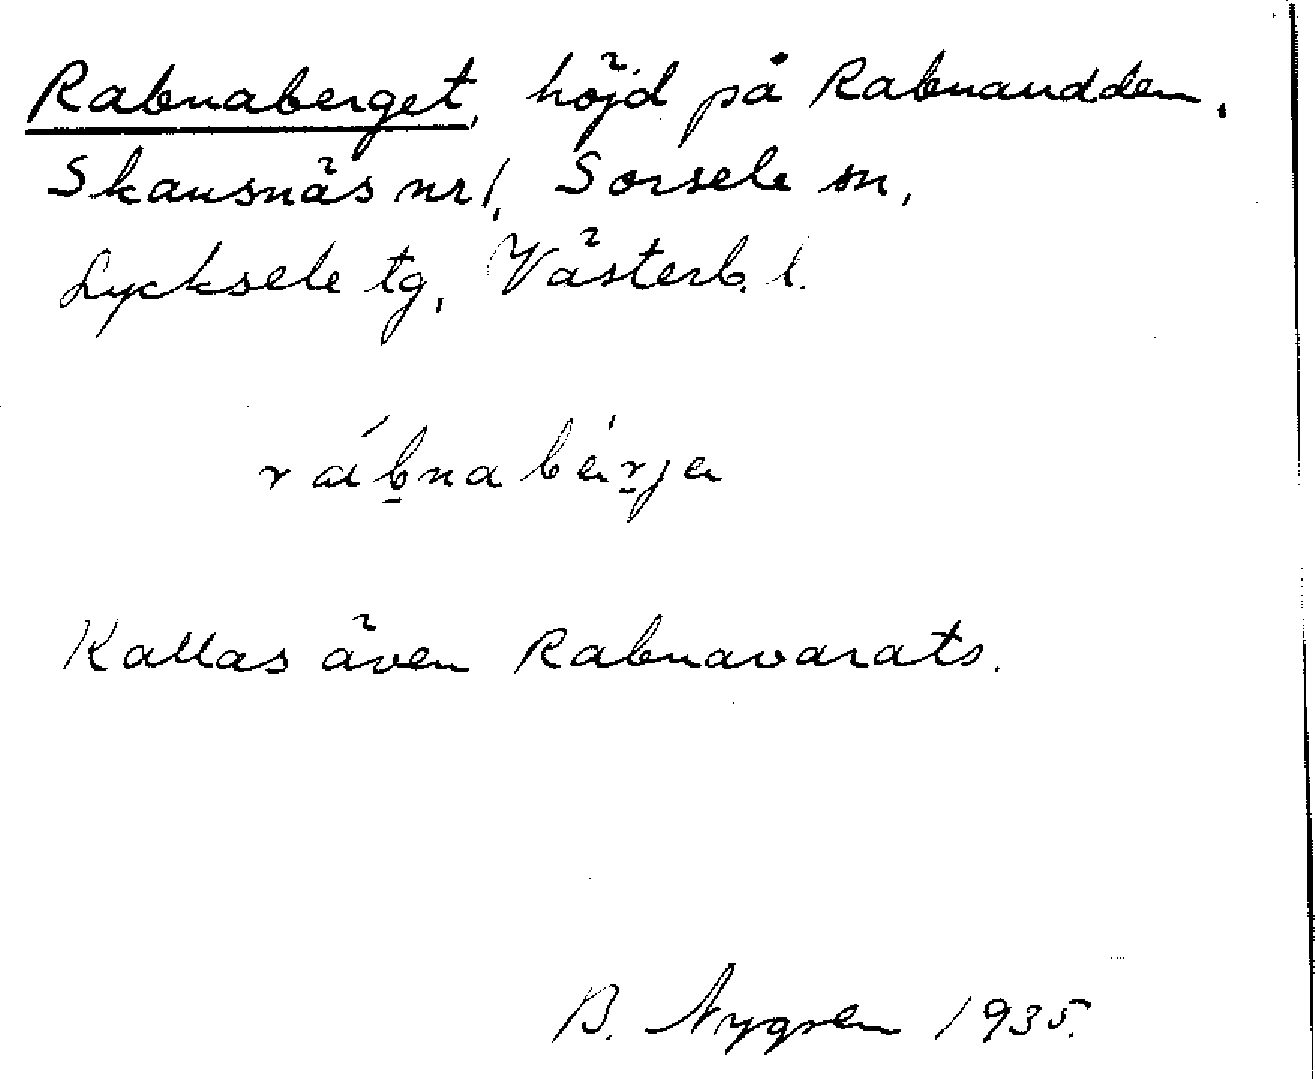 Rabnaberget, höjd på Rabnaudden,
Skansnäs nr 1, Sorsele sn,
Lycksele tg, Västerb. l.
rábnabérje
Kallas även Rabnavarats.
B. Nygren 1935.